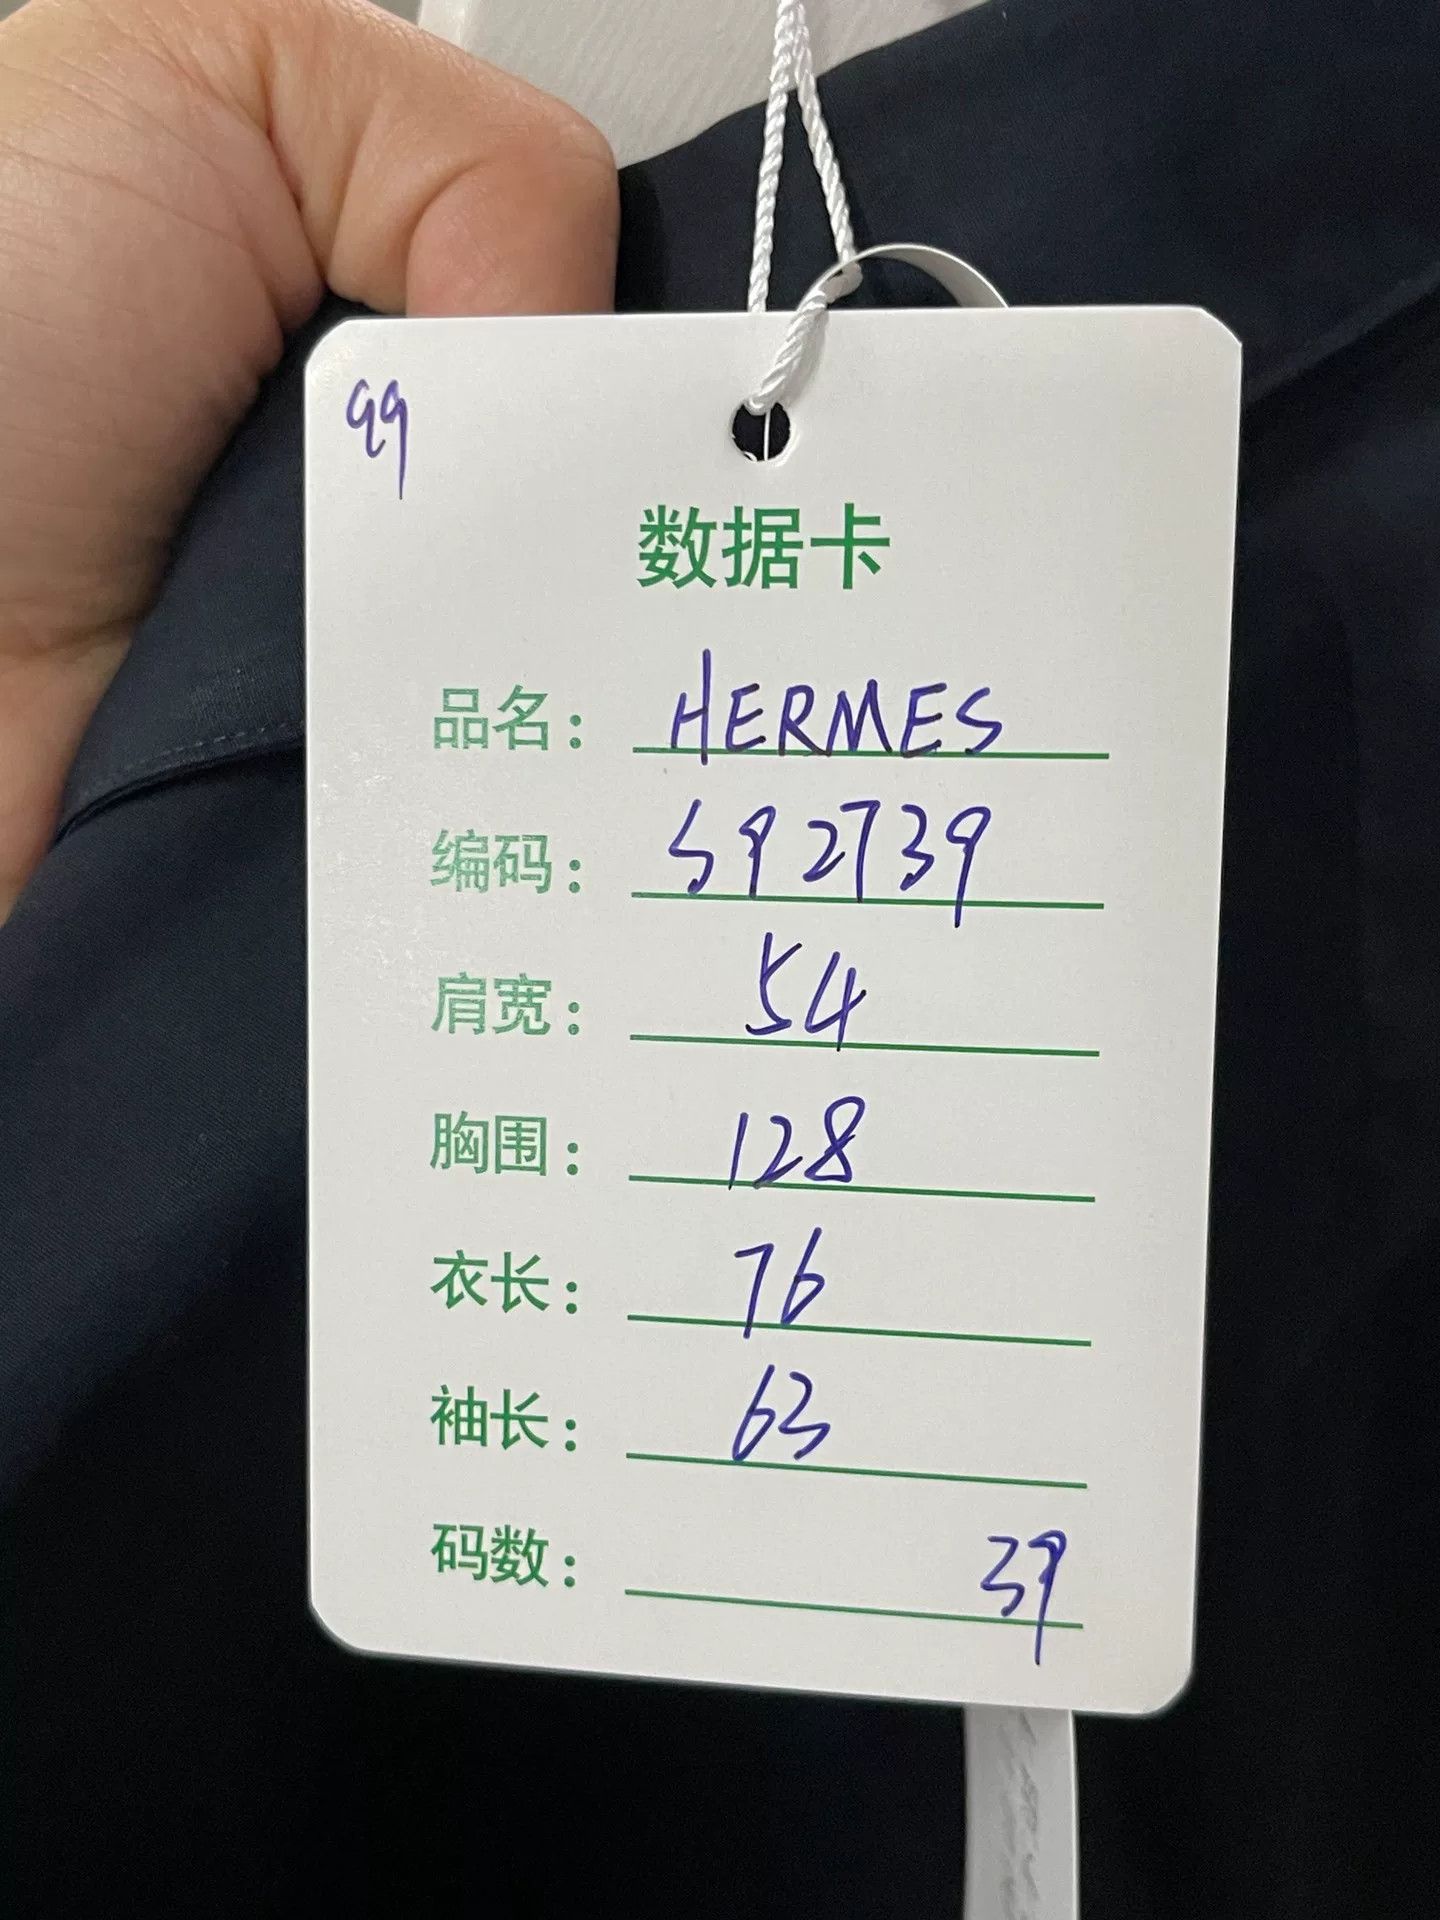 99
数据卡
品名: HERMES
编码: S92739
肩宽: 54
胸围: 128
衣长: 76
袖长: 63
码数: 39